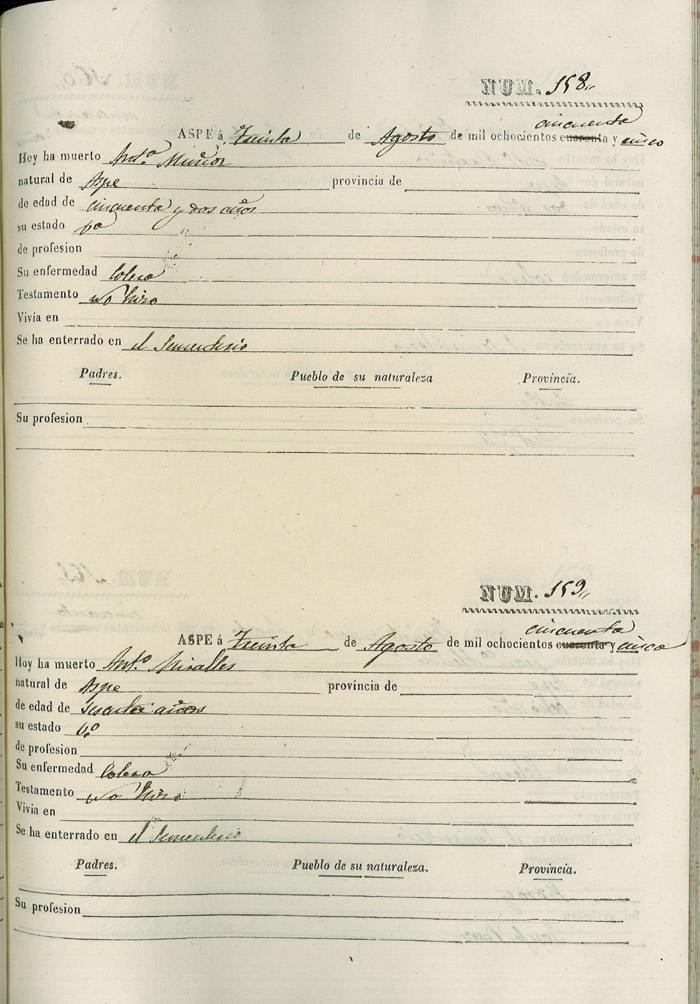 NUM. 158,,
cincuenta
ASPE á Treinta de Agosto de mil ochocientos cuarenta y cinco
Hoy ha muerto Ant.º Muñoz
natural de Aspe provincia de
de edad de cincuenta y dos años
su estado
de profesion
Su enfermedad Colera
Testamento no hizo
Vivia en
Se ha enterrado en el Sementerio
Padres. Pueblo de su naturaleza Provincia.
Su profesion
NUM. 159,,
cincuenta
ASPE á Treinta de Agosto de mil ochocientos cuarenta y cinco
Hoy ha muerto Ant.º Miralles
natural de Aspe provincia de
de edad de años
su estado
de profesion
Su enfermedad Colera
Testamento no hizo
Vivia en
Se ha enterrado en el Sementerio
Padres. Pueblo de su naturaleza. Provincia.
Su profesion